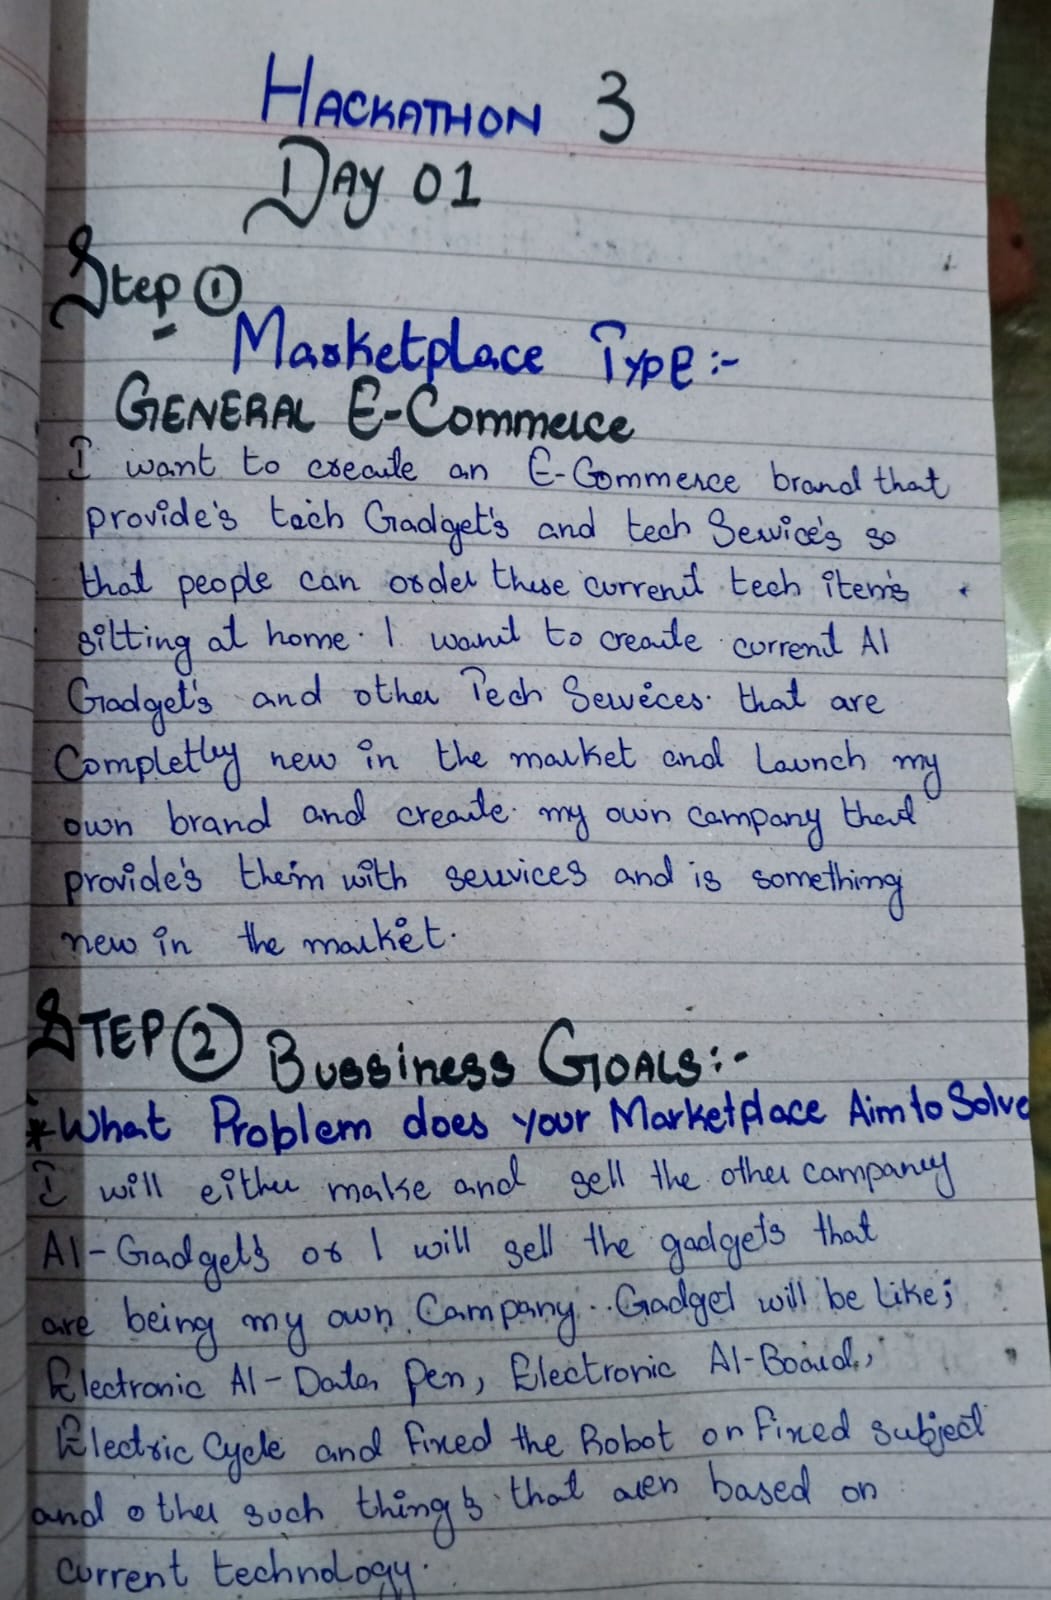 HACKATHON 3
DAY 01
Step ①
Marketplace TYPE:-
GENERAL E-Commerce
I want to create an E-Commerce brand that
provide's tech Gadget's and tech Service's so
that people can order these current tech item's
sitting at home. I want to create current AI
Gadget's and other Tech Services. that are
Completly new in the market and Launch my
own brand and create my own company that
provide's them with services and is something
new in the market.
STEP ② BUSSINESS GOALS:-
*What Problem does your Marketplace Aim to Solve
I will either make and sell the other company
AI-Gadget's or I will sell the gadgets that
are being my own Company.. Gadget will be like;
Electronic AI-Data Pen, Electronic AI-Board,
Electric Cycle and fixed the Robot on fixed subject
and other such things that aren based on
current technology.